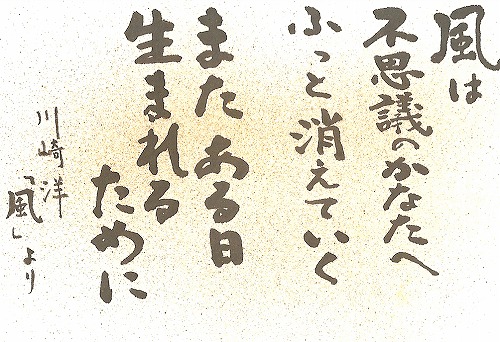 風は
不思議のかなたへ
ふっと消えていく
また ある日
生まれる
ために
川崎洋
「風」より